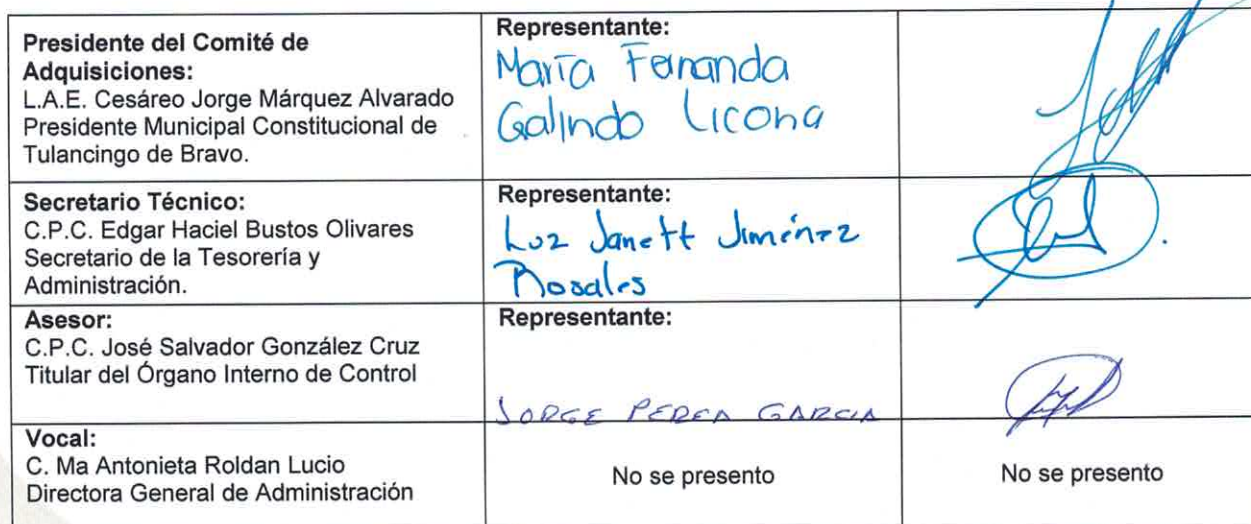 Presidente del Comité de
Adquisiciones:
L.A.E. Cesáreo Jorge Márquez Alvarado
Presidente Municipal Constitucional de
Tulancingo de Bravo.
Representante:
María Fernanda
Galindo Licona
Secretario Técnico:
C.P.C. Edgar Haciel Bustos Olivares
Secretario de la Tesorería y
Administración.
Representante:
Luz Janett Jiménez
Rosales
Asesor:
C.P.C. José Salvador González Cruz
Titular del Órgano Interno de Control
Representante:
JORGE PEREA GARCIA
Vocal:
C. Ma Antonieta Roldan Lucio
Directora General de Administración
No se presento
No se presento